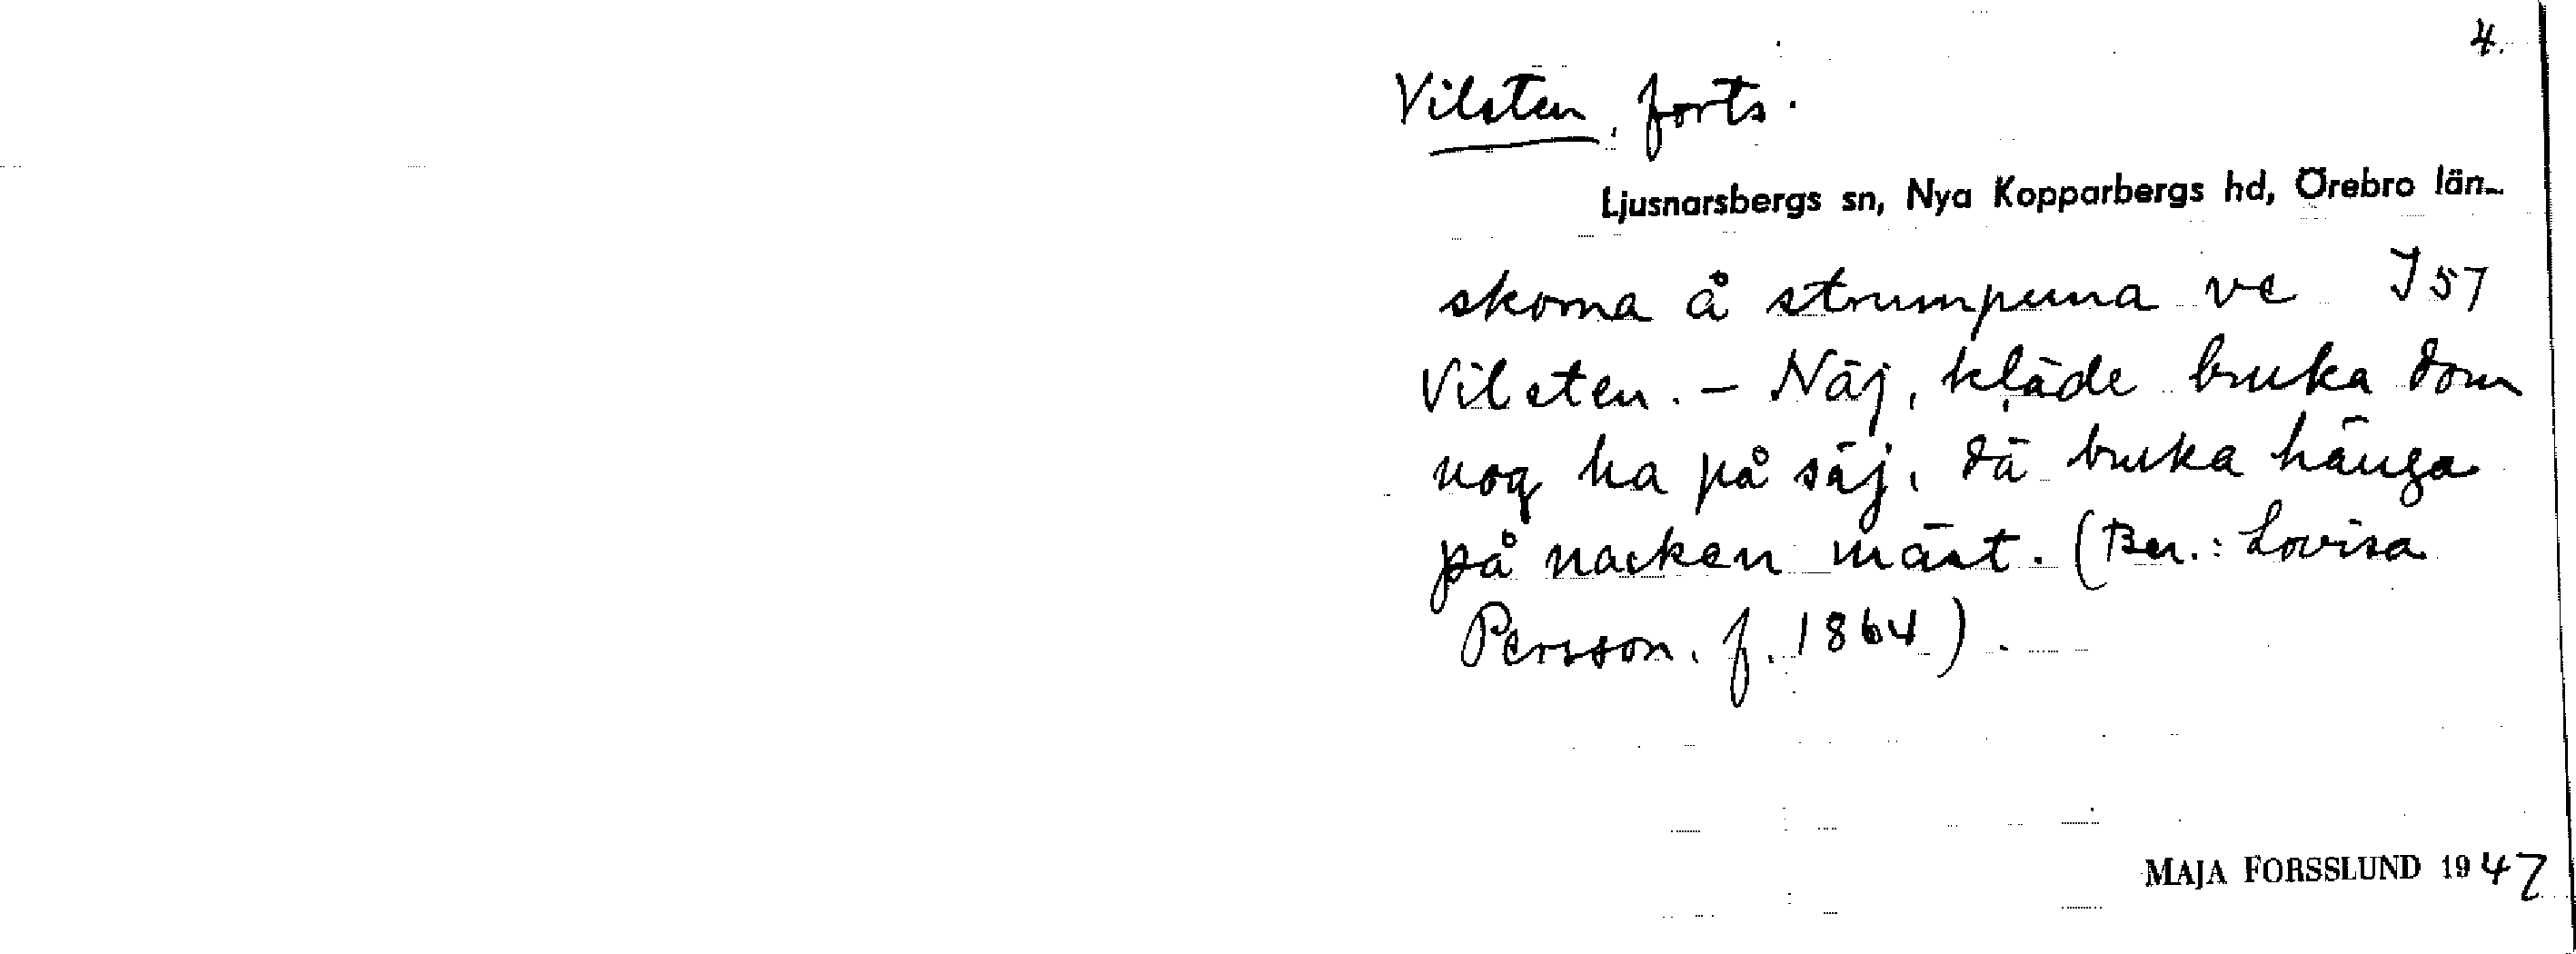 4.
Vilsten, forts.
Ljusnarsbergs sn, Nya Kopparbergs hd, Örebro län
skorna å strumpuna ve J 57
Vilsten. - Näj, kläde bruka dom
nog ha på säj, dä bruka hänga
på nacken mäst. (Ber.: Lovisa
Persson, f. 1864).
MAJA FORSSLUND 1947